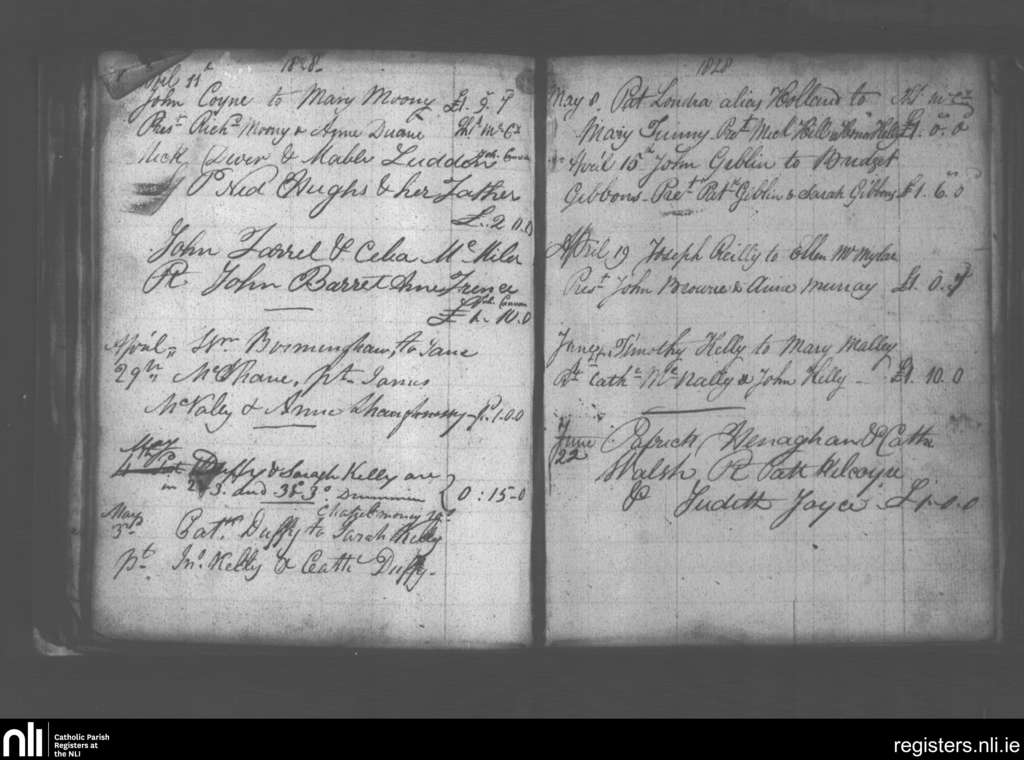 1828
April 11th
John Coyne to Mary Moony £1. 9. 7
Prest Richd Moony & Anne Duane Ths McC
Mick Diver & Mable Luddon
P Ned Hughs & her Father
£. 2 0.0
John Farrel & Celia McHiler
P. John Barret Anne
£ 1. 10.0
April Wm Bormingham, to Jane
29th McShane, pt James
McValey & Anne Shaughnessy £1.0.0
May
4 Pat Duffy & Sarah Kelly are
in 2d 3. and 3d 3o
Chapel money
0 : 15-0
May
3rd Patk Duffy to Sarah Kelly
pt Jno Kelly & Cath Duffy.
1828
May 8, Pat Londra alias Holland to
Mary Tunny Prst Michl Hill £1. 0. 0
April 15th John Geblin to Bridget
Gibbons - Prest Patk Geblin & Sarah Gibbons £1. 6. 0
April 19 Joseph Reilly to Ellen McMylar
Prest John Browne & Anne Murray £1. 0. 7
June Timothy Kelly to Mary Malley
Pt Cathe McNally & John Kelly - £1. 10. 0
June
22 Patrick Henaghan & Cathn
Walsh P. Patt Kilcoyne
& Judith Joyce £1-0.0
nli
Catholic Parish
Registers at
the NLI
registers.nli.ie